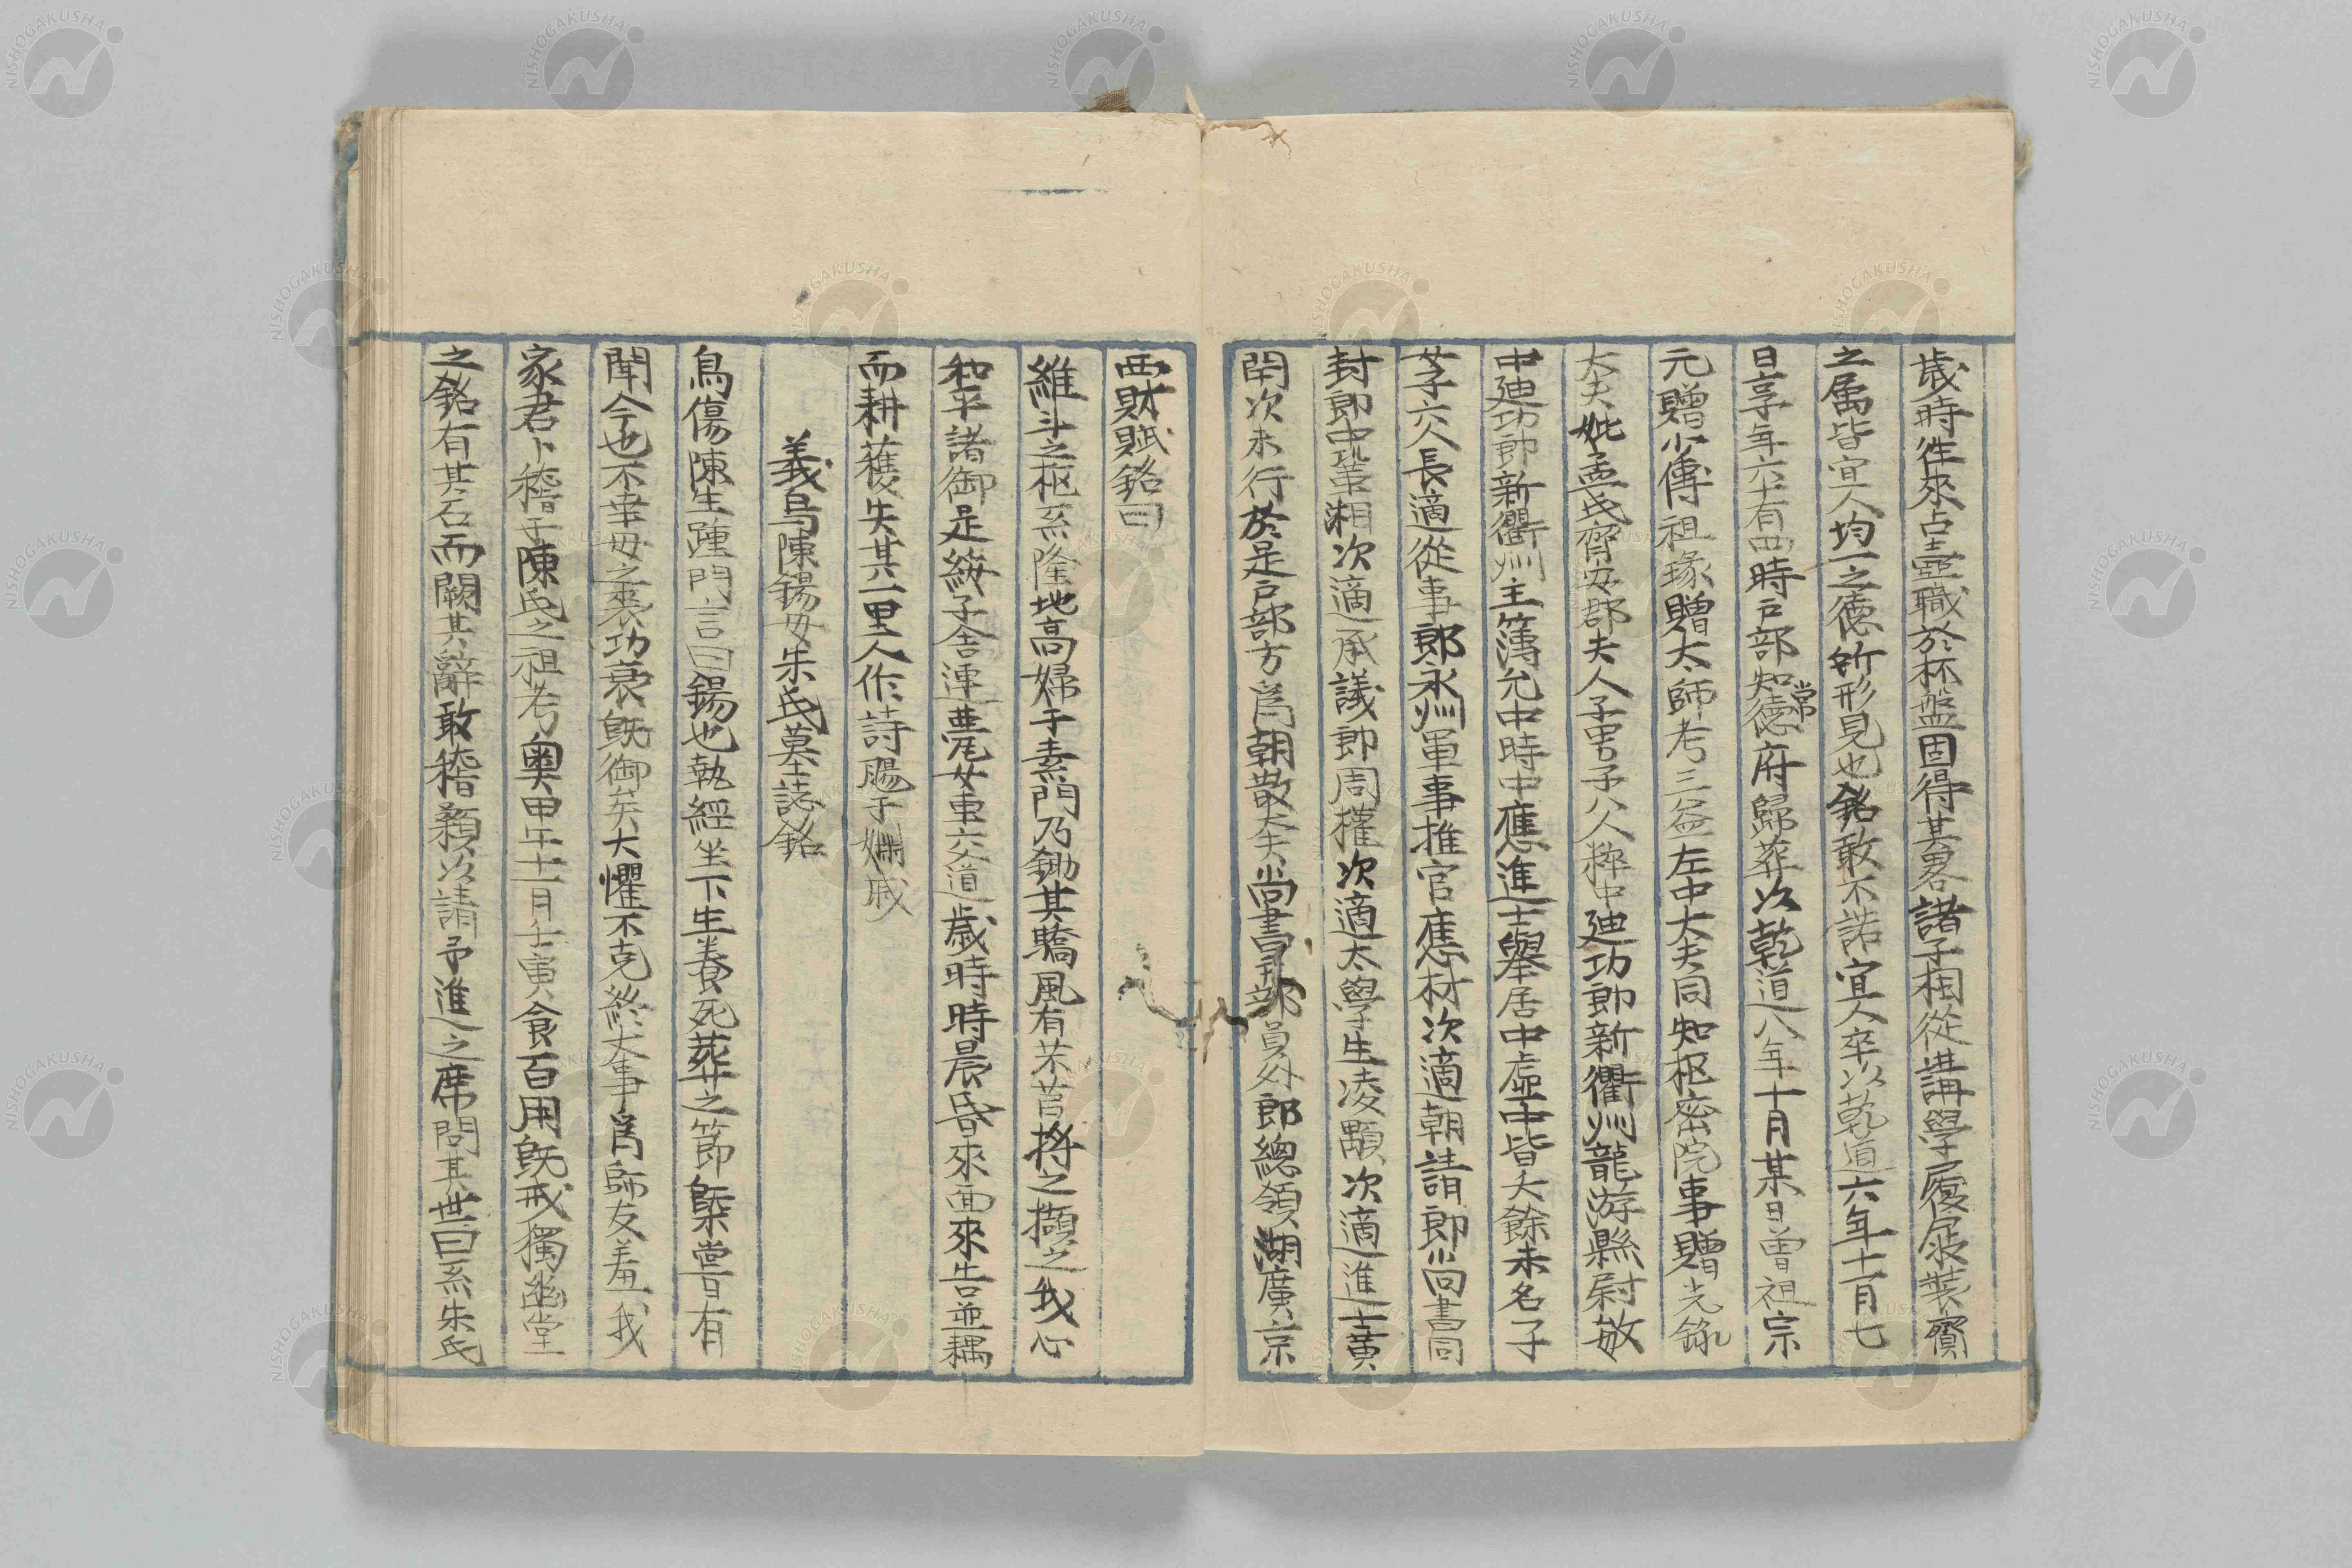 歳時往來占壺職於杯盤固得其畧諸子相從講學履屐裝賓
之属皆宜人均一之徳所形見也銘敢不諾宜人卒以乾道六年十一月七
日享年六十有四時戸部知常徳府歸葬以乾道八年十月某日曽祖宗
元贈少傅祖琢贈太師考三益左中大夫同知枢密院事贈光禄
大夫妣孟氏齊安郡夫人子男子八人粹中廸功郎新衢州龍游縣尉敏
中廸功郎新衢州主簿允中時中應進士舉居中虚中皆夭餘未名子
女子六人長適從事郎永州軍事推官應材次適朝請郎尚書司
封郎中鞏湘次適承議郎周權次適太學生凌顥次適進士黄
閈次未行於是戸部方爲朝散大夫尚書部員外郎總領湖廣京
西財賦銘曰
維斗之枢系隆地高婦于素門乃鋤其驕風有苤苢捋之擷之我心
和平諸御是綏子舎連甍女車六道歳時時晨昏來面來告並耦
而耕穫失其一里人作詩賜予嫻戚
義烏陳錫母朱氏墓誌銘
烏傷陳生踵門言曰錫也執經坐下生養死葬之節槩嘗有
聞今也不幸母之喪功衰既御矣大懼不克終大事爲師友羞我
家君卜稽于陳氏之祖考粤甲午十一月壬寅食百用既戒獨幽堂
之銘有其石而闕其辭敢稽顙以請予進之席問其世曰系朱氏
NISHOGAKUSHA